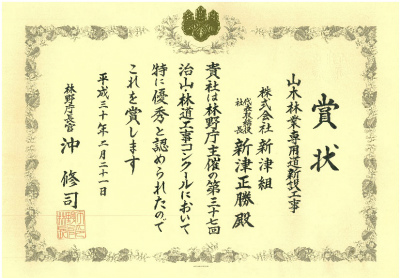 賞状
山木林業専用道新設工事
株式会社新津組
代表取締役
社長
新津正勝殿
貴社は林野庁主催の第三十七回
治山林道工事コンクールにおいて
特に優秀と認められたので
これを賞します
平成三十年二月二十一日
林野庁長官
沖修司